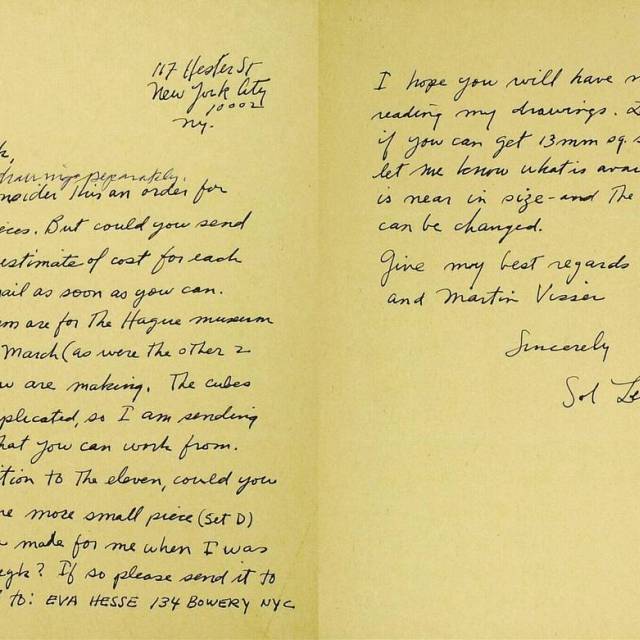 117 Hester St
New York City
10002
NY.
k,
drawings separately.
nsider this an order for
eces. But could you send
estimate of cost for each
ail as soon as you can.
m are for the Hague museum
March (as were the other 2
w are making. The cubes
plicated, so I am sending
hat you can work from.
tion to the eleven, could you
ne more small piece (Set D)
made for me when I was
eyk? If so please send it to
to: EVA HESSE 134 BOWERY NYC
I hope you will have n
reading my drawings.
if you can get 13mm sq. s
let me know what is avai
is near in size - and the
can be changed.
Give my best regards
and Martin Visser
Sincerely
Sol Le